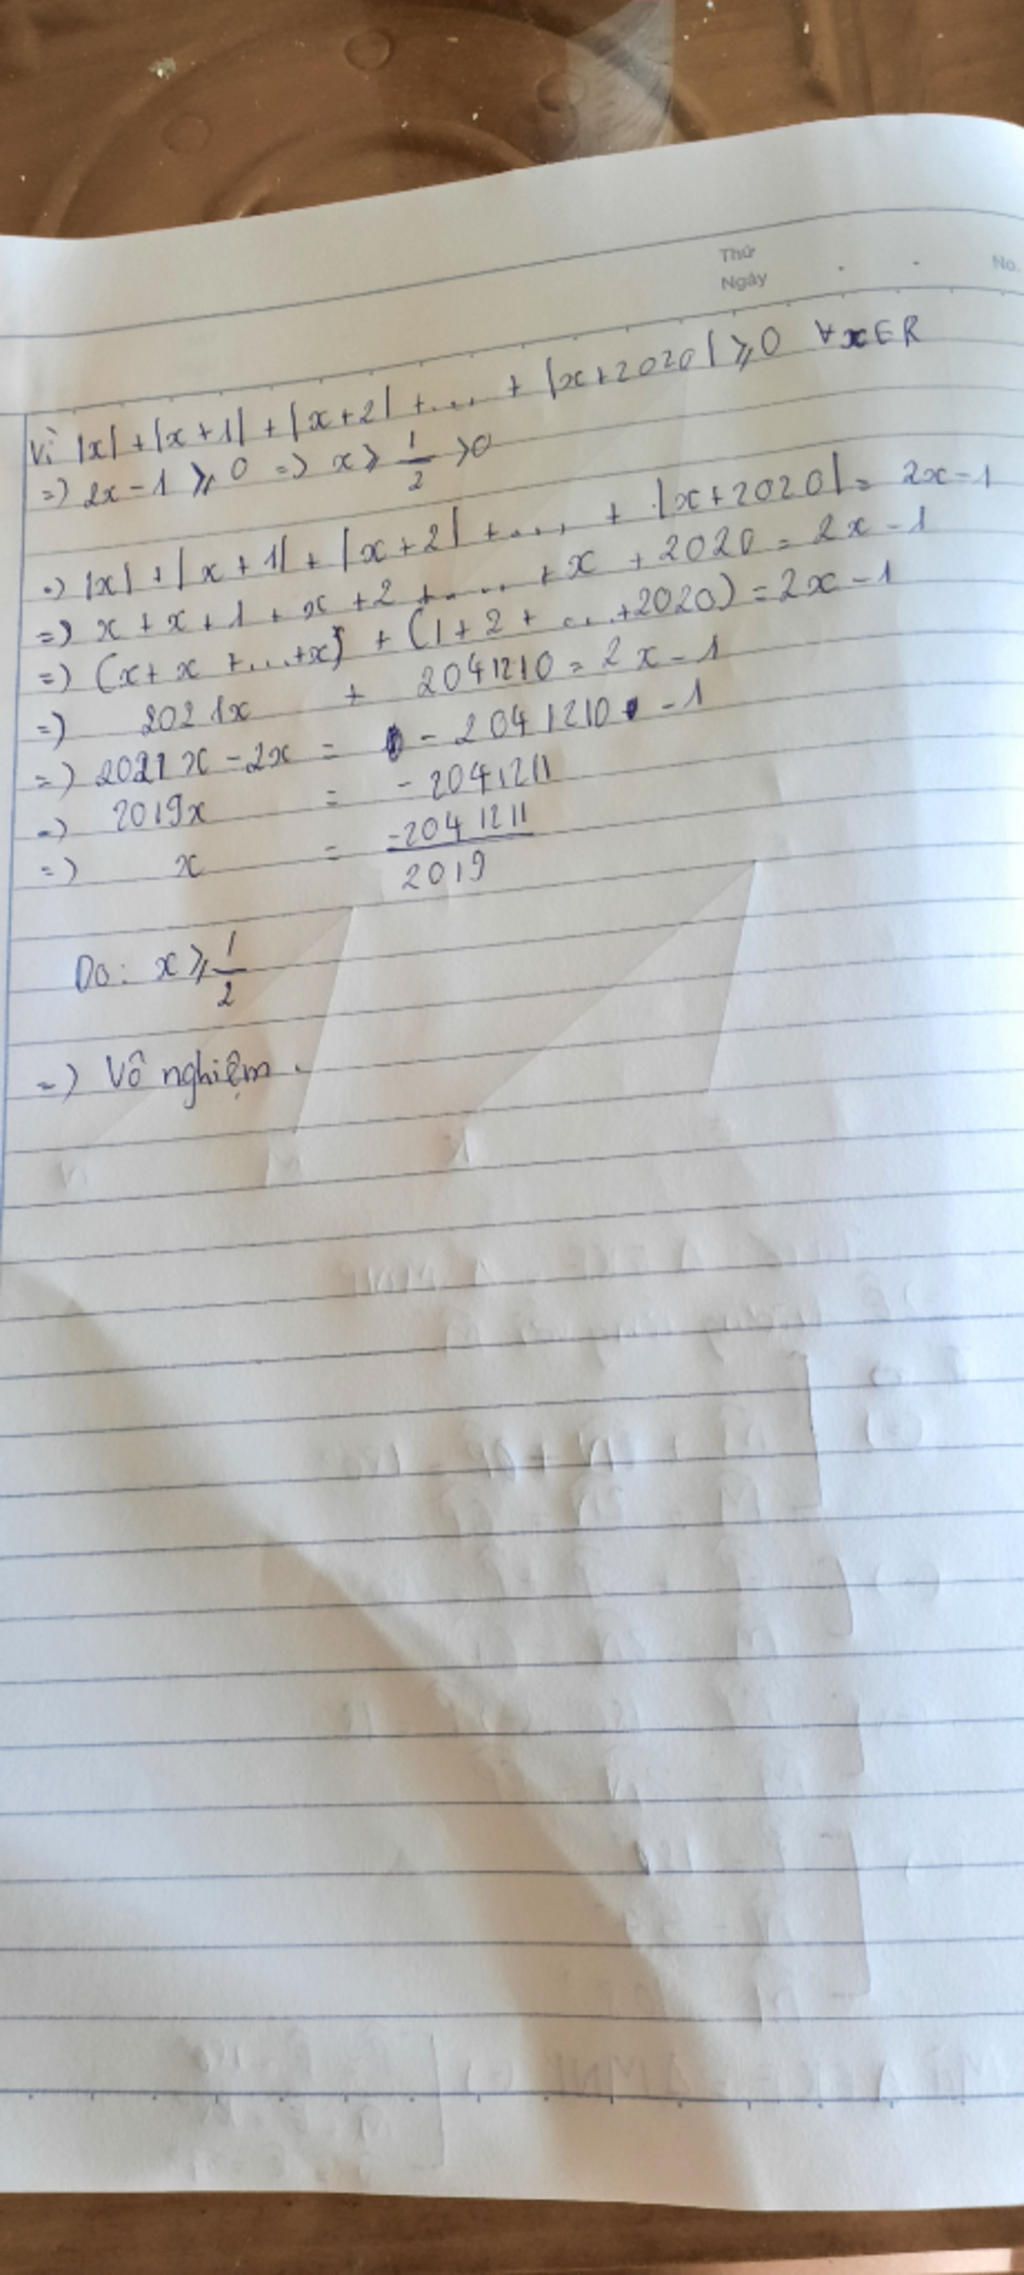 Thứ
Ngày
No.
Vì |x| + |x+1| + |x+2| + .... + |x+2020| ⩾ 0 ∀x∈R
=) 2x-1 ⩾ 0 =) x ⩾ 1/2 > 0
=) |x| + |x+1| + |x+2| + .... + |x+2020| = 2x-1
=) x + x + 1 + x + 2 + .... + x + 2020 = 2x-1
=) (x + x + ... + x) + (1 + 2 + ... + 2020) = 2x-1
=) 2021x + 2041210 = 2x-1
=) 2021x - 2x = -2041210 - 1
=) 2019x = -2041211
=) x = -2041211/2019
Do: x ⩾ 1/2
=) Vô nghiệm.